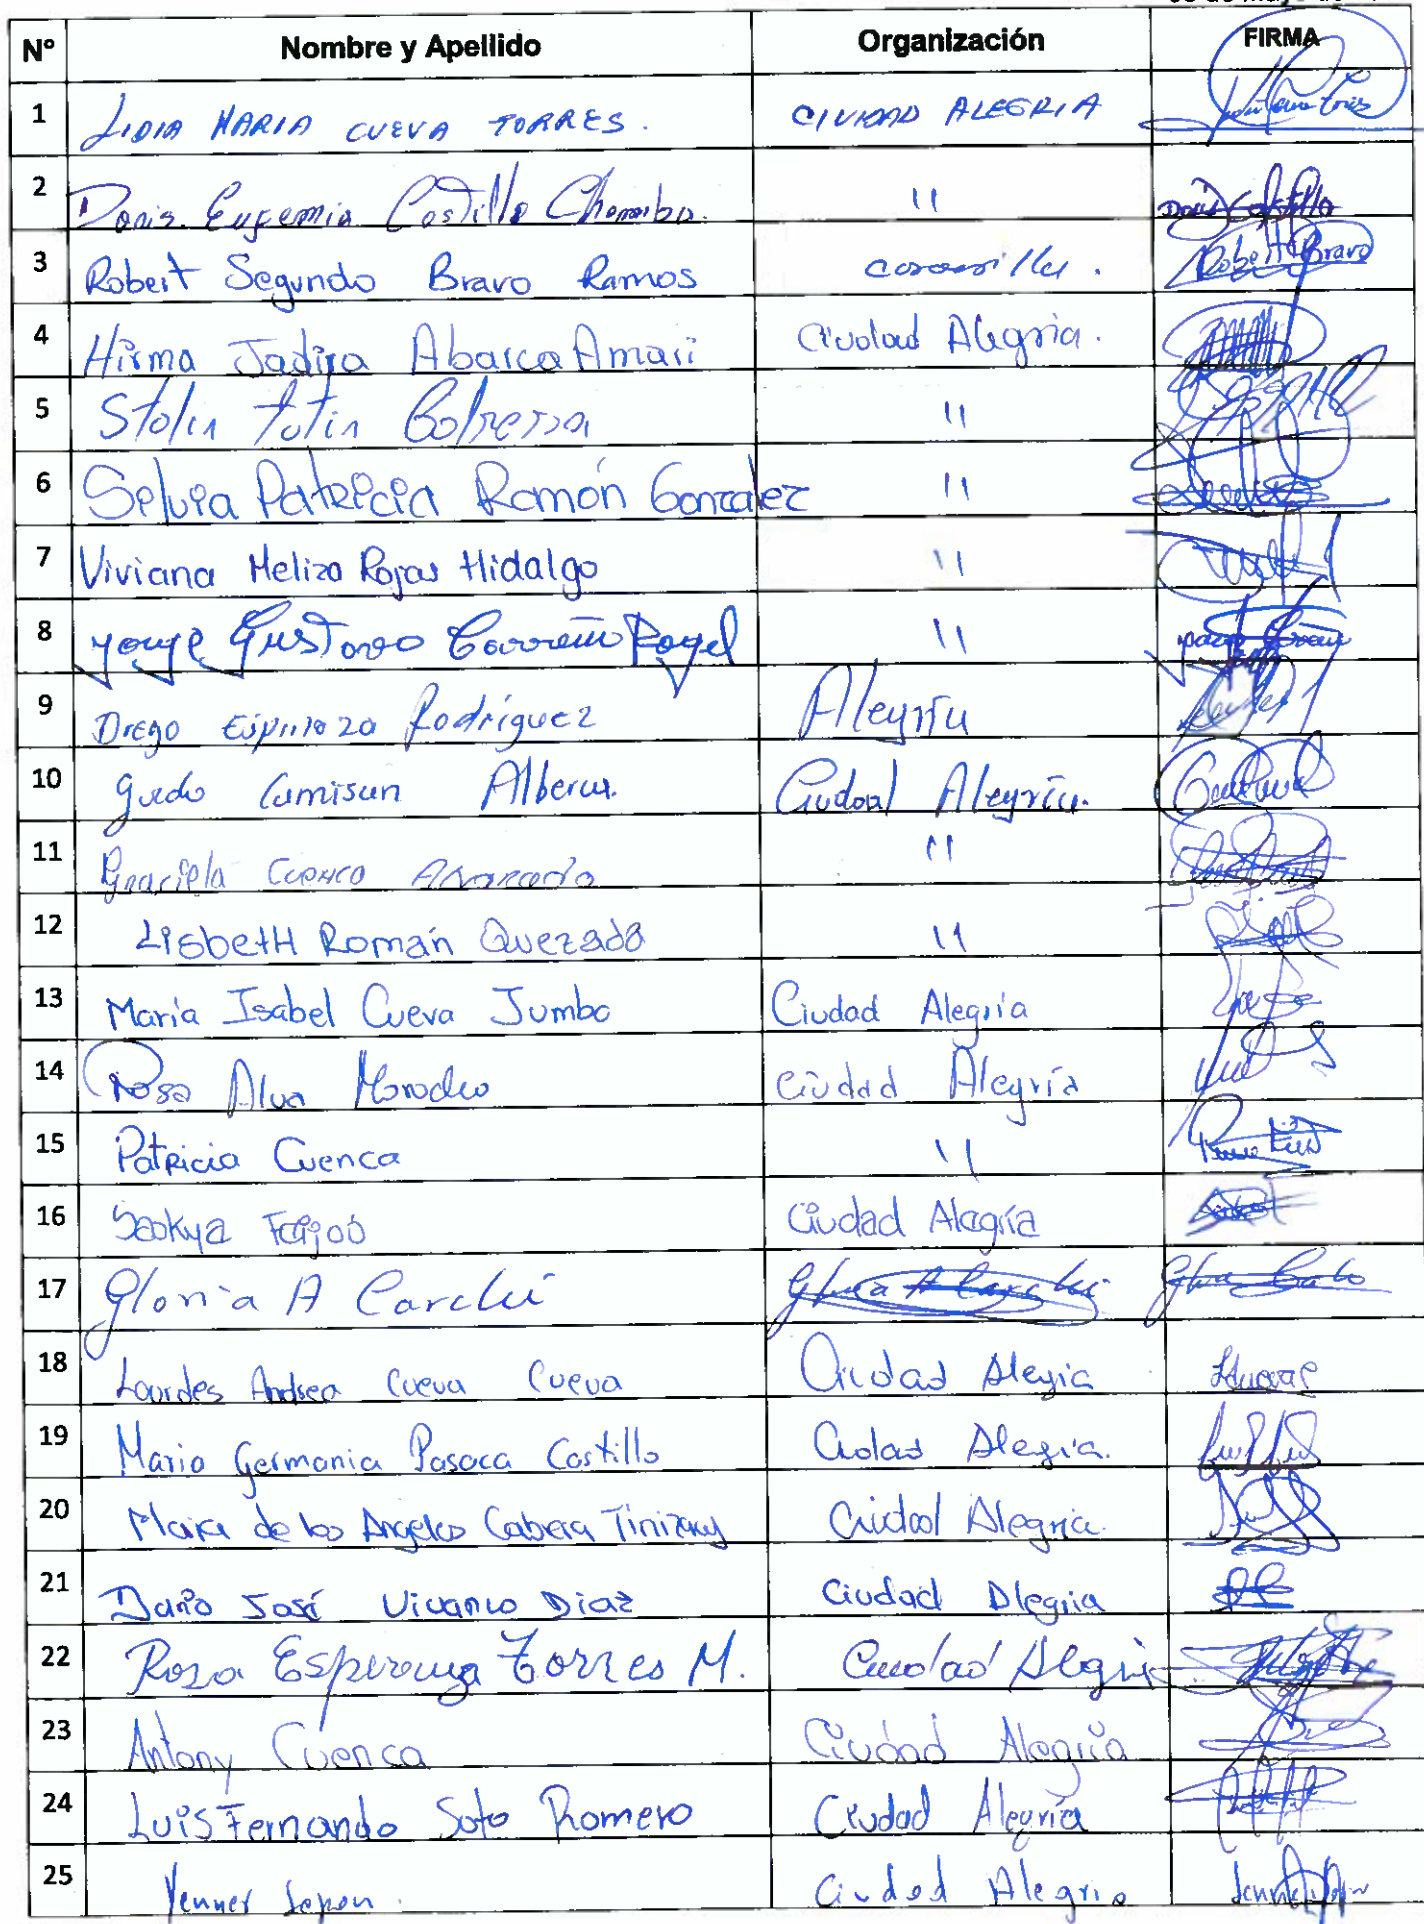 Nº Nombre y Apellido Organización FIRMA
1 LIDIA MARIA CUEVA TORRES. CIUDAD ALEGRIA
2 Doris Eugemia Castillo Chamba. 11 Doris Castillo
3 Robert Segundo Bravo Ramos Robert Bravo
4 Hirma Jadira Abarca Amari Ciudad Alegria.
5 Stalin Tutin Cabrera 11
6 Selvia Patricia Ramón Gonzalez 11
7 Viviana Meliza Rojas Hidalgo 11
8 Jorge Gustavo Carreño Royel 11
9 Diego Espinoza Rodríguez Alegría
10 Guido Camisan Alberca. Ciudad Alegría.
11 Graciela Cuenca 11
12 LisbetH Román Quezada 11
13 María Isabel Cueva Jumbo Ciudad Alegría
14 Rosa Alva Ciudad Alegría
15 Patricia Cuenca 11
16 Saskya Feijoó Ciudad Alegría
17 Gloria A Carchi Gloria A Carchi
18 Lourdes Andrea Cueva Cueva Ciudad Alegia
19 Maria Germania Pasaca Castillo Ciudad Alegria.
20 Maria de los Angeles Cabera Tinizay Ciudad Alegria.
21 Dario José Vivanco Diaz Ciudad Alegria
22 Rosa Esperanza Torres M. Ciudad Alegri
23 Antony Cuenca Ciudad Alegria
24 Luis Fernando Soto Romero Ciudad Alegría
25 Yenner Ciudad Alegria